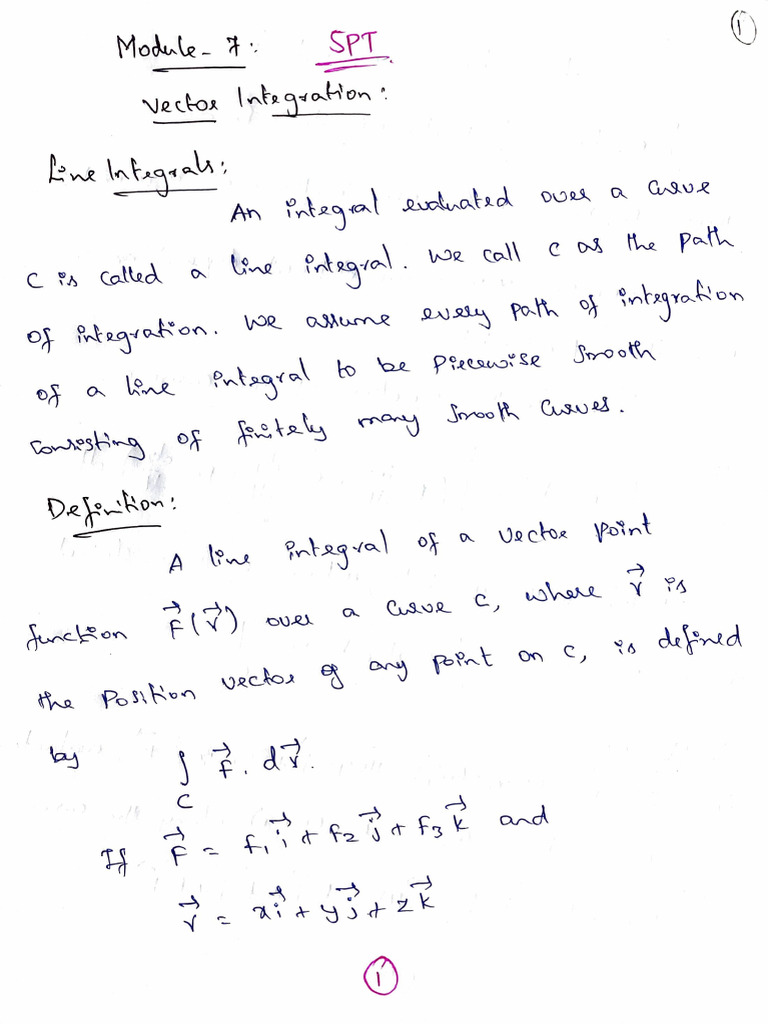 ①
Module - 7: SPT
Vector Integration:
Line Integrals:
An integral evaluated over a curve
C is called a line integral. We call C as the path
of integration. We assume every path of integration
of a line integral to be piecewise smooth
consisting of finitely many smooth curves.
Definition:
A line integral of a vector point
function F⃗(r⃗) over a curve C, where r⃗ is
the position vector of any point on C, is defined
by ∫_C F⃗ . dr⃗.
If F⃗ = f₁i⃗ + f₂j⃗ + f₃k⃗ and
r⃗ = xi⃗ + yj⃗ + zk⃗
①